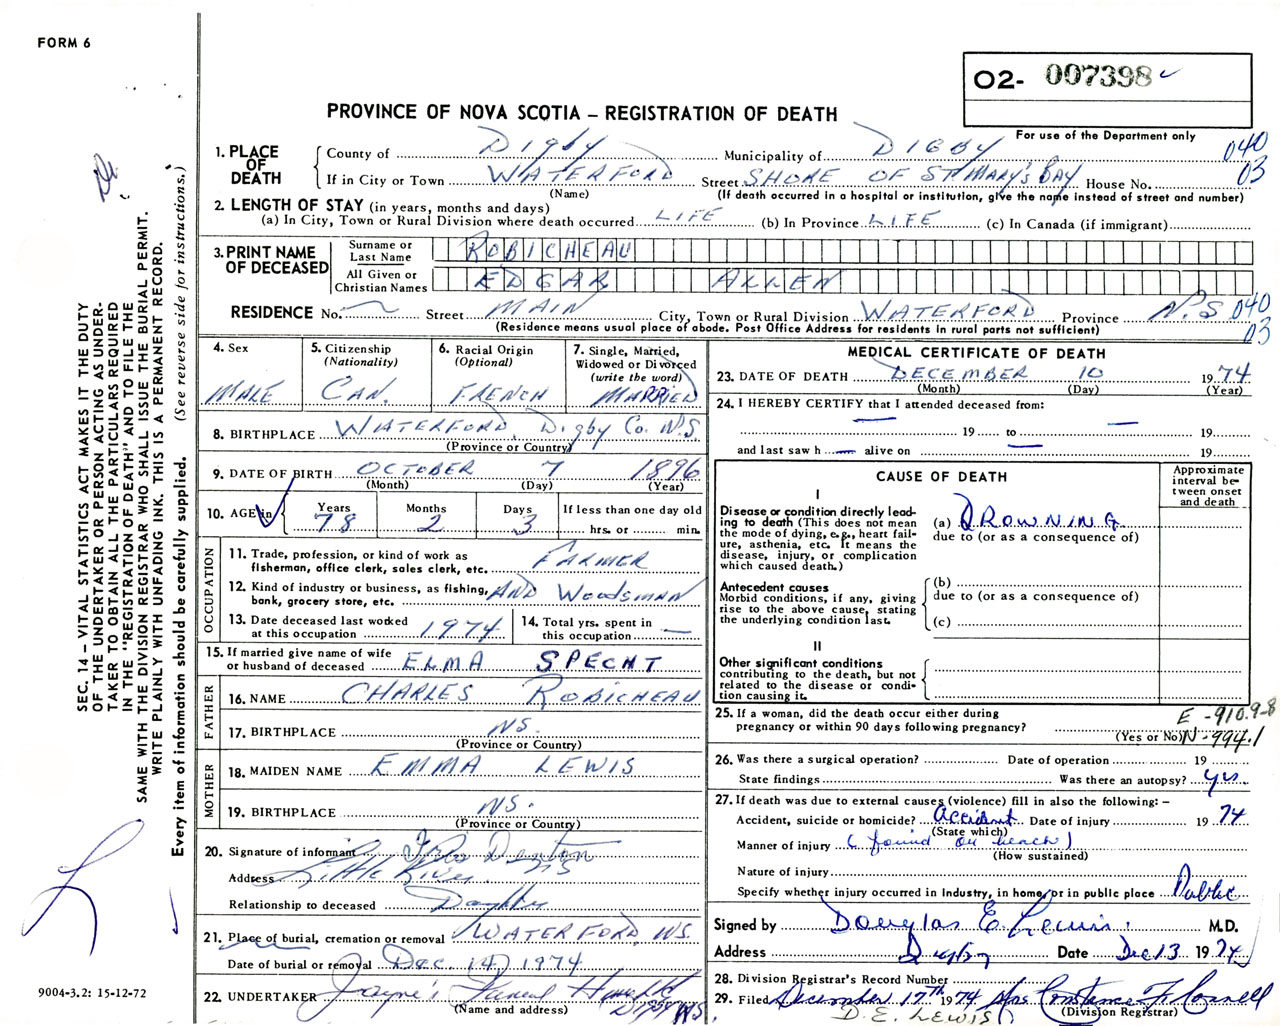 FORM 6
O2- 007398
PROVINCE OF NOVA SCOTIA – REGISTRATION OF DEATH
For use of the Department only
040
03
1. PLACE OF DEATH
County of DIGBY Municipality of DIGBY
If in City or Town WATERFORD Street SHORE OF ST MARY'S BAY House No.
(Name) (If death occurred in a hospital or institution, give the name instead of street and number)
2. LENGTH OF STAY (in years, months and days)
(a) In City, Town or Rural Division where death occurred LIFE (b) In Province LIFE (c) In Canada (if immigrant)
3. PRINT NAME OF DECEASED
Surname or Last Name ROBICHEAU
All Given or Christian Names EDGAR ALLEN
RESIDENCE No. Street MAIN City, Town or Rural Division WATERFORD Province N.S 040
(Residence means usual place of abode. Post Office Address for residents in rural parts not sufficient) 03
4. Sex MALE
5. Citizenship (Nationality) CAN.
6. Racial Origin (Optional) FRENCH
7. Single, Married, Widowed or Divorced (write the word) MARRIED
8. BIRTHPLACE WATERFORD, Digby Co. N.S.
(Province or Country)
9. DATE OF BIRTH OCTOBER 7 1896
(Month) (Day) (Year)
10. AGE in Years 78 Months 2 Days 3 If less than one day old hrs. or min.
OCCUPATION
11. Trade, profession, or kind of work as fisherman, office clerk, sales clerk, etc. FARMER
12. Kind of industry or business, as fishing, bank, grocery store, etc. AND WOODSMAN
13. Date deceased last worked at this occupation 1974
14. Total yrs. spent in this occupation —
15. If married give name of wife or husband of deceased ELMA SPECHT
FATHER
16. NAME CHARLES ROBICHEAU
17. BIRTHPLACE NS.
(Province or Country)
MOTHER
18. MAIDEN NAME EMMA LEWIS
19. BIRTHPLACE NS.
(Province or Country)
20. Signature of informant Denton
Address Little River NS
Relationship to deceased Daughter
21. Place of burial, cremation or removal WATERFORD, N.S.
Date of burial or removal Dec. 14, 1974
22. UNDERTAKER Jayne's Funeral Home Ltd Digby NS
(Name and address)
MEDICAL CERTIFICATE OF DEATH
23. DATE OF DEATH DECEMBER 10 1974
(Month) (Day) (Year)
24. I HEREBY CERTIFY that I attended deceased from:
— 19 to — 19
and last saw h — alive on — 19
CAUSE OF DEATH
Approximate interval between onset and death
I
Disease or condition directly leading to death (This does not mean the mode of dying, e.g., heart failure, asthenia, etc. It means the disease, injury, or complication which caused death.)
(a) DROWNING
due to (or as a consequence of)
Antecedent causes
Morbid conditions, if any, giving rise to the above cause, stating the underlying condition last.
(b)
due to (or as a consequence of)
(c)
II
Other significant conditions contributing to the death, but not related to the disease or condition causing it.
25. If a woman, did the death occur either during pregnancy or within 90 days following pregnancy?
(Yes or No)
E -910.9-8
N-994.1
26. Was there a surgical operation? Date of operation 19
State findings Was there an autopsy? yes.
27. If death was due to external causes (violence) fill in also the following: –
Accident, suicide or homicide? Accident Date of injury 1974
(State which)
Manner of injury (found on beach)
(How sustained)
Nature of injury
Specify whether injury occurred in industry, in home, or in public place Public
Signed by Douglas E. Lewis M.D.
Address Digby Date Dec 13 1974
28. Division Registrar's Record Number
29. Filed December 17th 1974 Mrs Constance F. Connell
(Division Registrar)
D. E. LEWIS
SEC. 14 – VITAL STATISTICS ACT MAKES IT THE DUTY
OF THE UNDERTAKER OR PERSON ACTING AS UNDER-
TAKER TO OBTAIN ALL THE PARTICULARS REQUIRED
IN THE "REGISTRATION OF DEATH" AND TO FILE THE
SAME WITH THE DIVISION REGISTRAR WHO SHALL ISSUE THE BURIAL PERMIT.
WRITE PLAINLY WITH UNFADING INK. THIS IS A PERMANENT RECORD.
Every item of information should be carefully supplied. (See reverse side for instructions.)
9004-3.2: 15-12-72